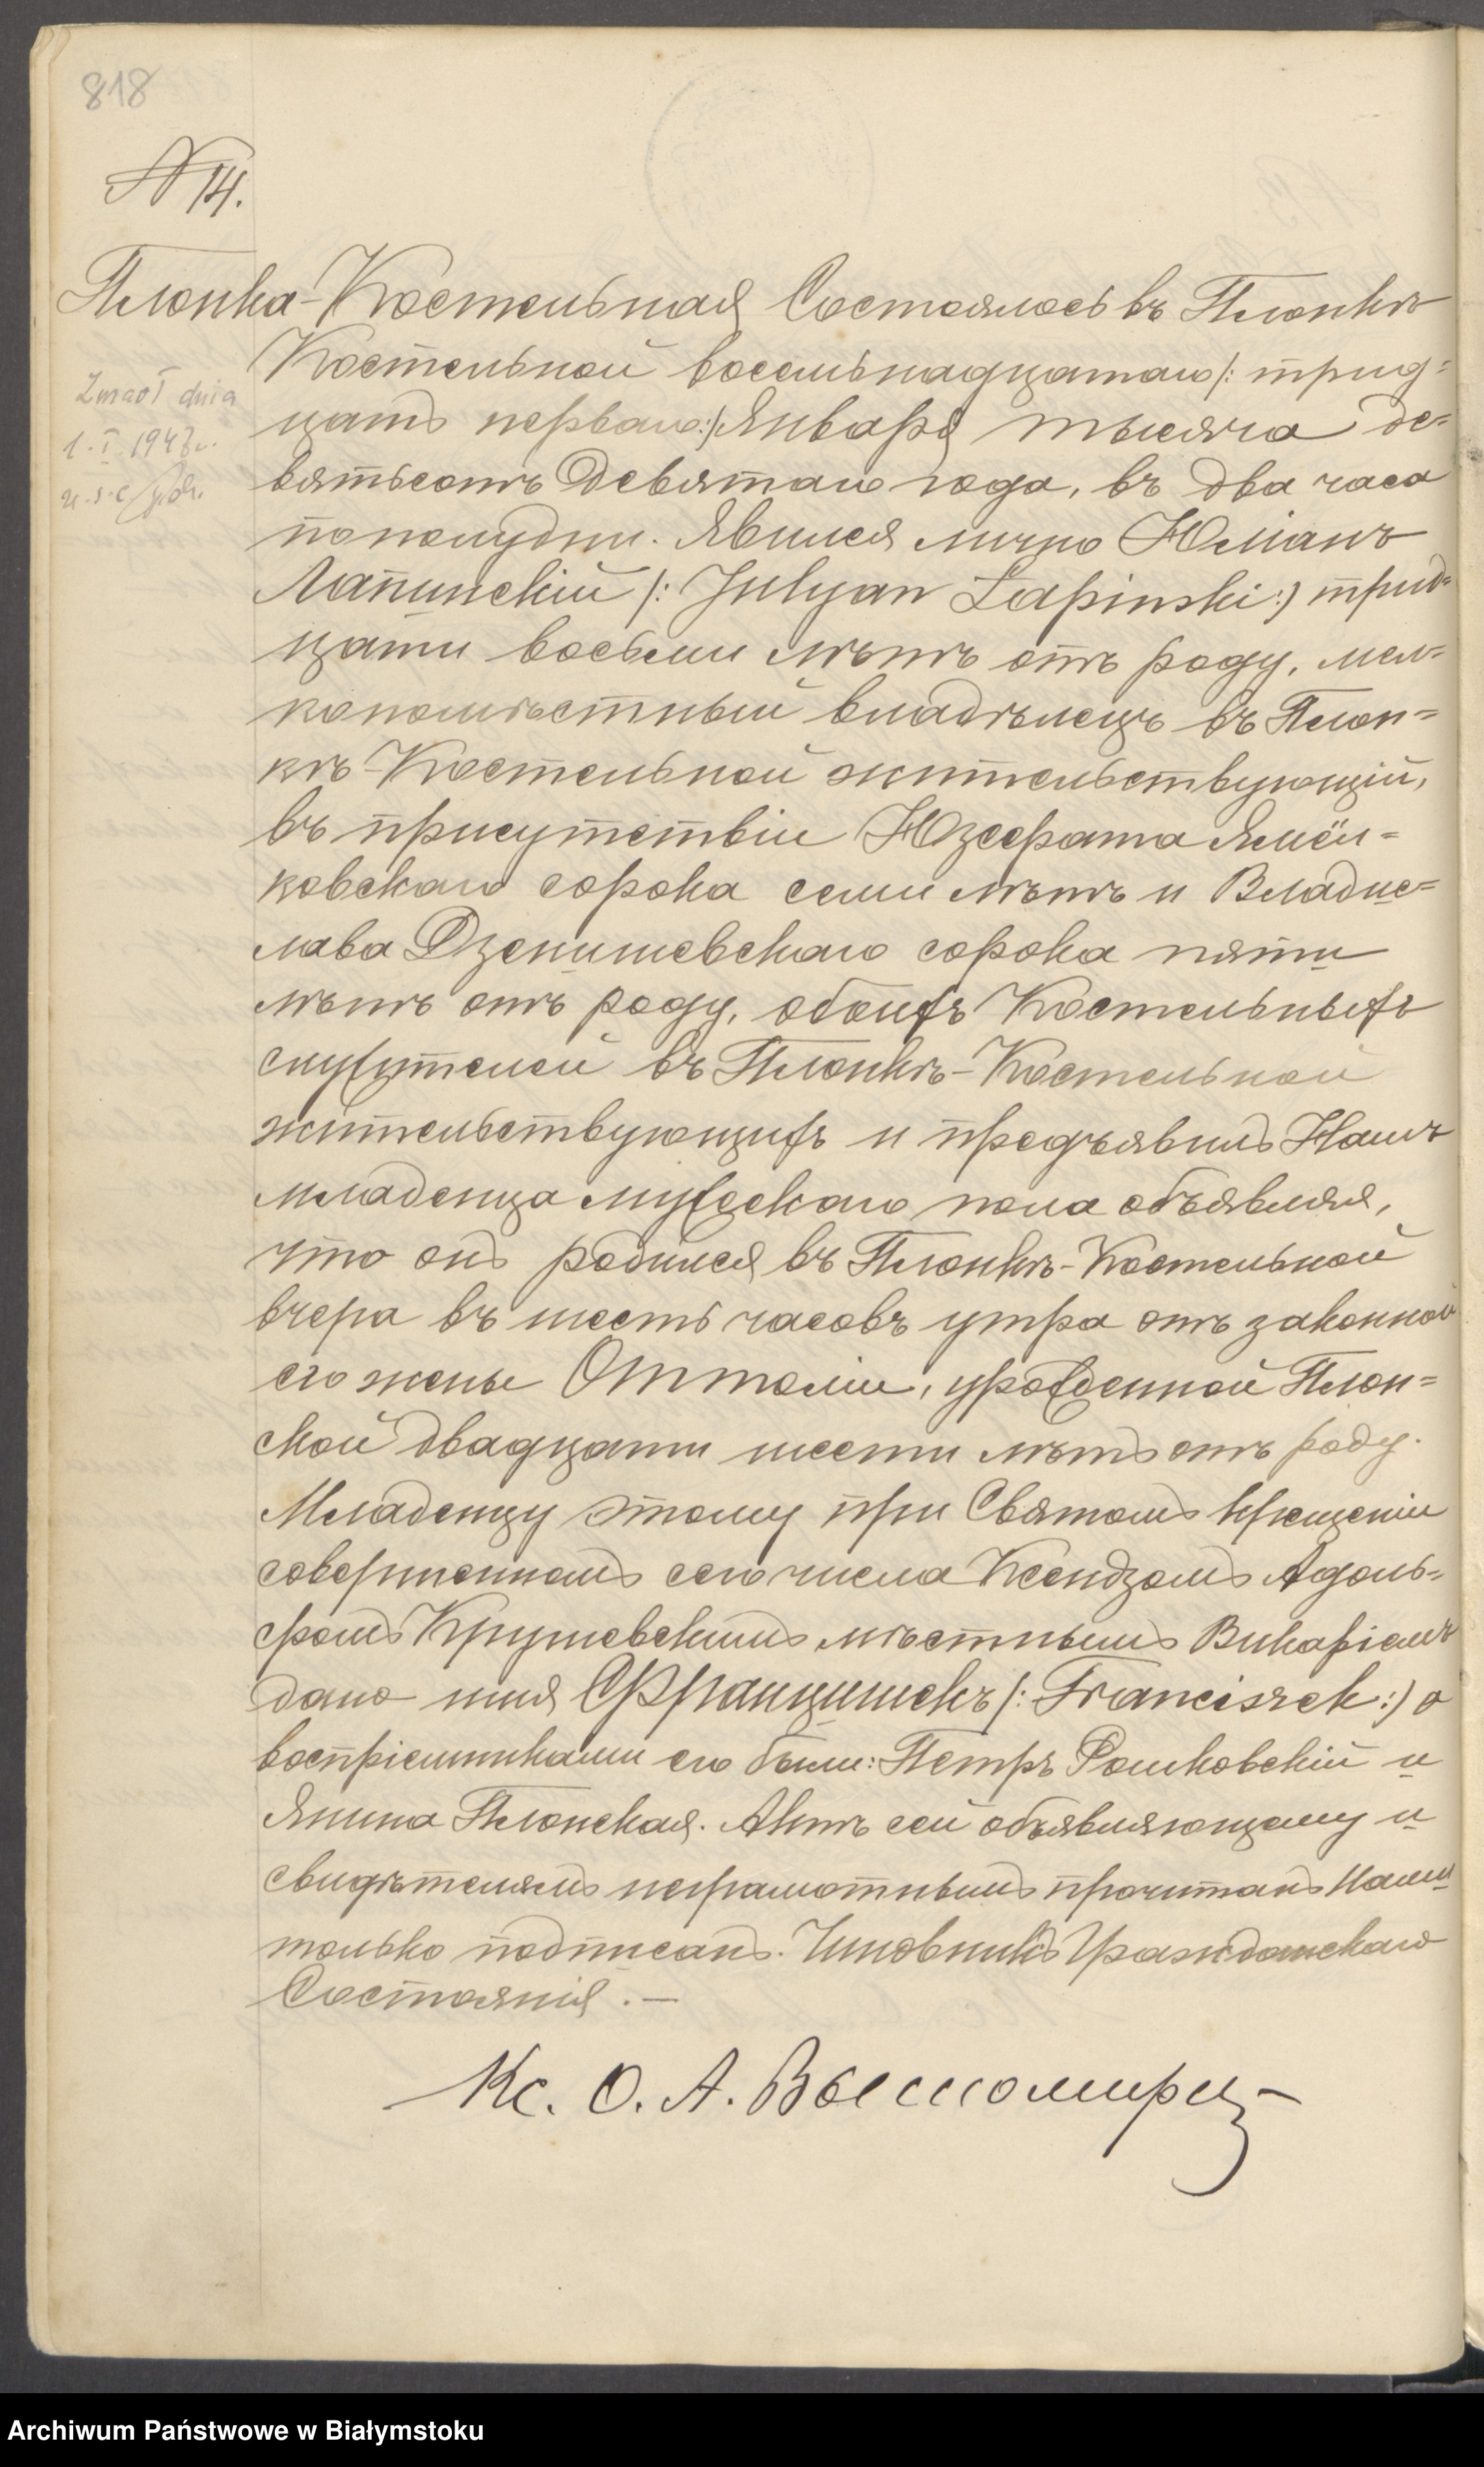 818
N 14.
Плонка-Костельная Состоялось въ Плонкѣ
Костельной восемьнадцатаго /: трид=
Zmarł dnia
цать перваго :/ Января тысяча де=
1. I. 1947 r.
вятьсотъ девятаго года, въ два часа
u. s. c.
пополудни. Явился лично Юліанъ
Лапинскій /: Julyan Łapinski :/ трид=
цати восьми лѣтъ отъ роду, мел=
копомѣстный владѣлецъ въ Плон=
кѣ-Костельной жительствующій,
въ присутствіи Юзефата Ямёл=
ковскаго сорока семи лѣтъ и Владис=
лава Дзенишевскаго сорока пяти
лѣтъ отъ роду, обоихъ Костельныхъ
служителей въ Плонкѣ-Костельной
жительствующихъ и предъявилъ Намъ
младенца мужескаго пола объявляя,
что онъ родился въ Плонкѣ-Костельной
вчера въ шесть часовъ утра отъ законной
его жены Оттоліи, урожденной Плон=
ской двадцати шести лѣтъ отъ роду.
Младенцу этому при Святомъ крещеніи
совершенномъ сего числа Ксендзомъ Адоль=
фомъ Крушевскимъ мѣстнымъ Викаріемъ
дано имя Францишекъ /: Franciszek :/ а
воспріемниками его были: Петръ Ромковскій и
Янина Плонская. Актъ сей объявляющему и
свидѣтелямъ неграмотнымъ прочитанъ Нами
только подписанъ. Чиновникъ Гражданскаго
Состоянія. —
Кс. О. А. Вы
Archiwum Państwowe w Białymstoku